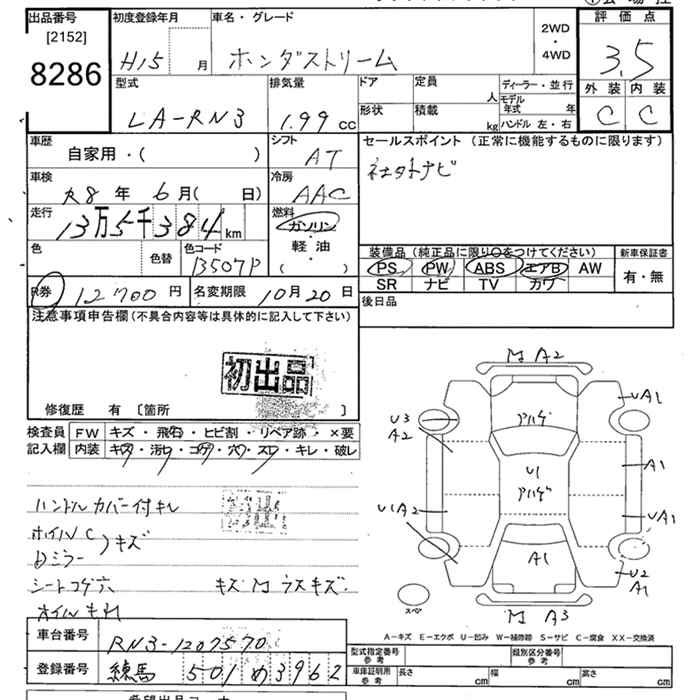 出品番号 初度登録年月 車名・グレード 2WD・4WD 評価点
[2152]
8286 H15 月 ホンダストリーム 3.5
型式 排気量 ドア 定員 人 ディーラー・並行 外装 内装
LA-RN3 1.99 cc 形状 積載 kg モデル年式 年 ハンドル 左・右 C C
車歴 シフト セールスポイント (正常に機能するものに限ります)
自家用・( ) AT
車検 冷房 社外ナビ
R8 年 6 月( 日) AAC
走行 燃料
13万5千384km ガソリン
軽・油
( ・ )
色 色替 色コード 装備品(純正品に限り○をつけてください) 新車保証書
B507P PS PW ABS エアB AW 有・無
SR ナビ TV カワ
R券 12700円 名変期限 10月20日 後日品
注意事項申告欄(不具合内容等は具体的に記入して下さい)
初出品
修復歴 有 〔箇所 〕
検査員 FW キズ・飛石・ヒビ割・リペア跡・×要
記入欄 内装 キズ・汚れ・コゲ・穴・スレ・キレ・破レ
M A2
UA1
アハゲ
U3
A2
A1
U1
アハゲ
U1A2
UA1
A1
U2
A1
スペア
M A3
ハンドルカバー付キレ
ホイルC
Dミラー )キズ
シートコゲ穴 キズM ラスキズ.
オイルもれ
A-キズ E-エクボ U-凹み W-補修跡 S-サビ C-腐食 XX-交換済
車台番号 RN3-1207570
登録番号 練馬 501 め 3962
型式指定番号 参考 類別区分番号 参考
車庫証明用 参考 長さ cm 幅 cm 高さ cm